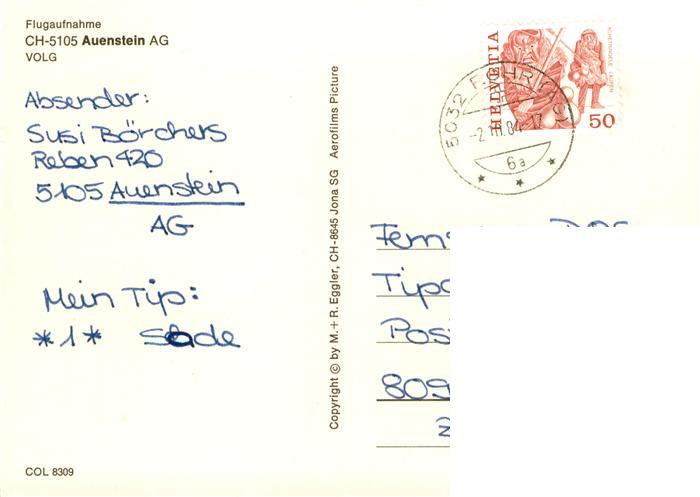 Flugaufnahme
CH-5105 Auenstein AG
VOLG
Absender:
Susi Börchers
Reben 420
5105 Auenstein
AG
Mein Tip:
*1* Sade
COL 8309
Copyright © by M. + R. Eggler, CH-8645 Jona SG Aerofilms Picture
HELVETIA
50
5032
-2.III.84-17
6a
Pos
809